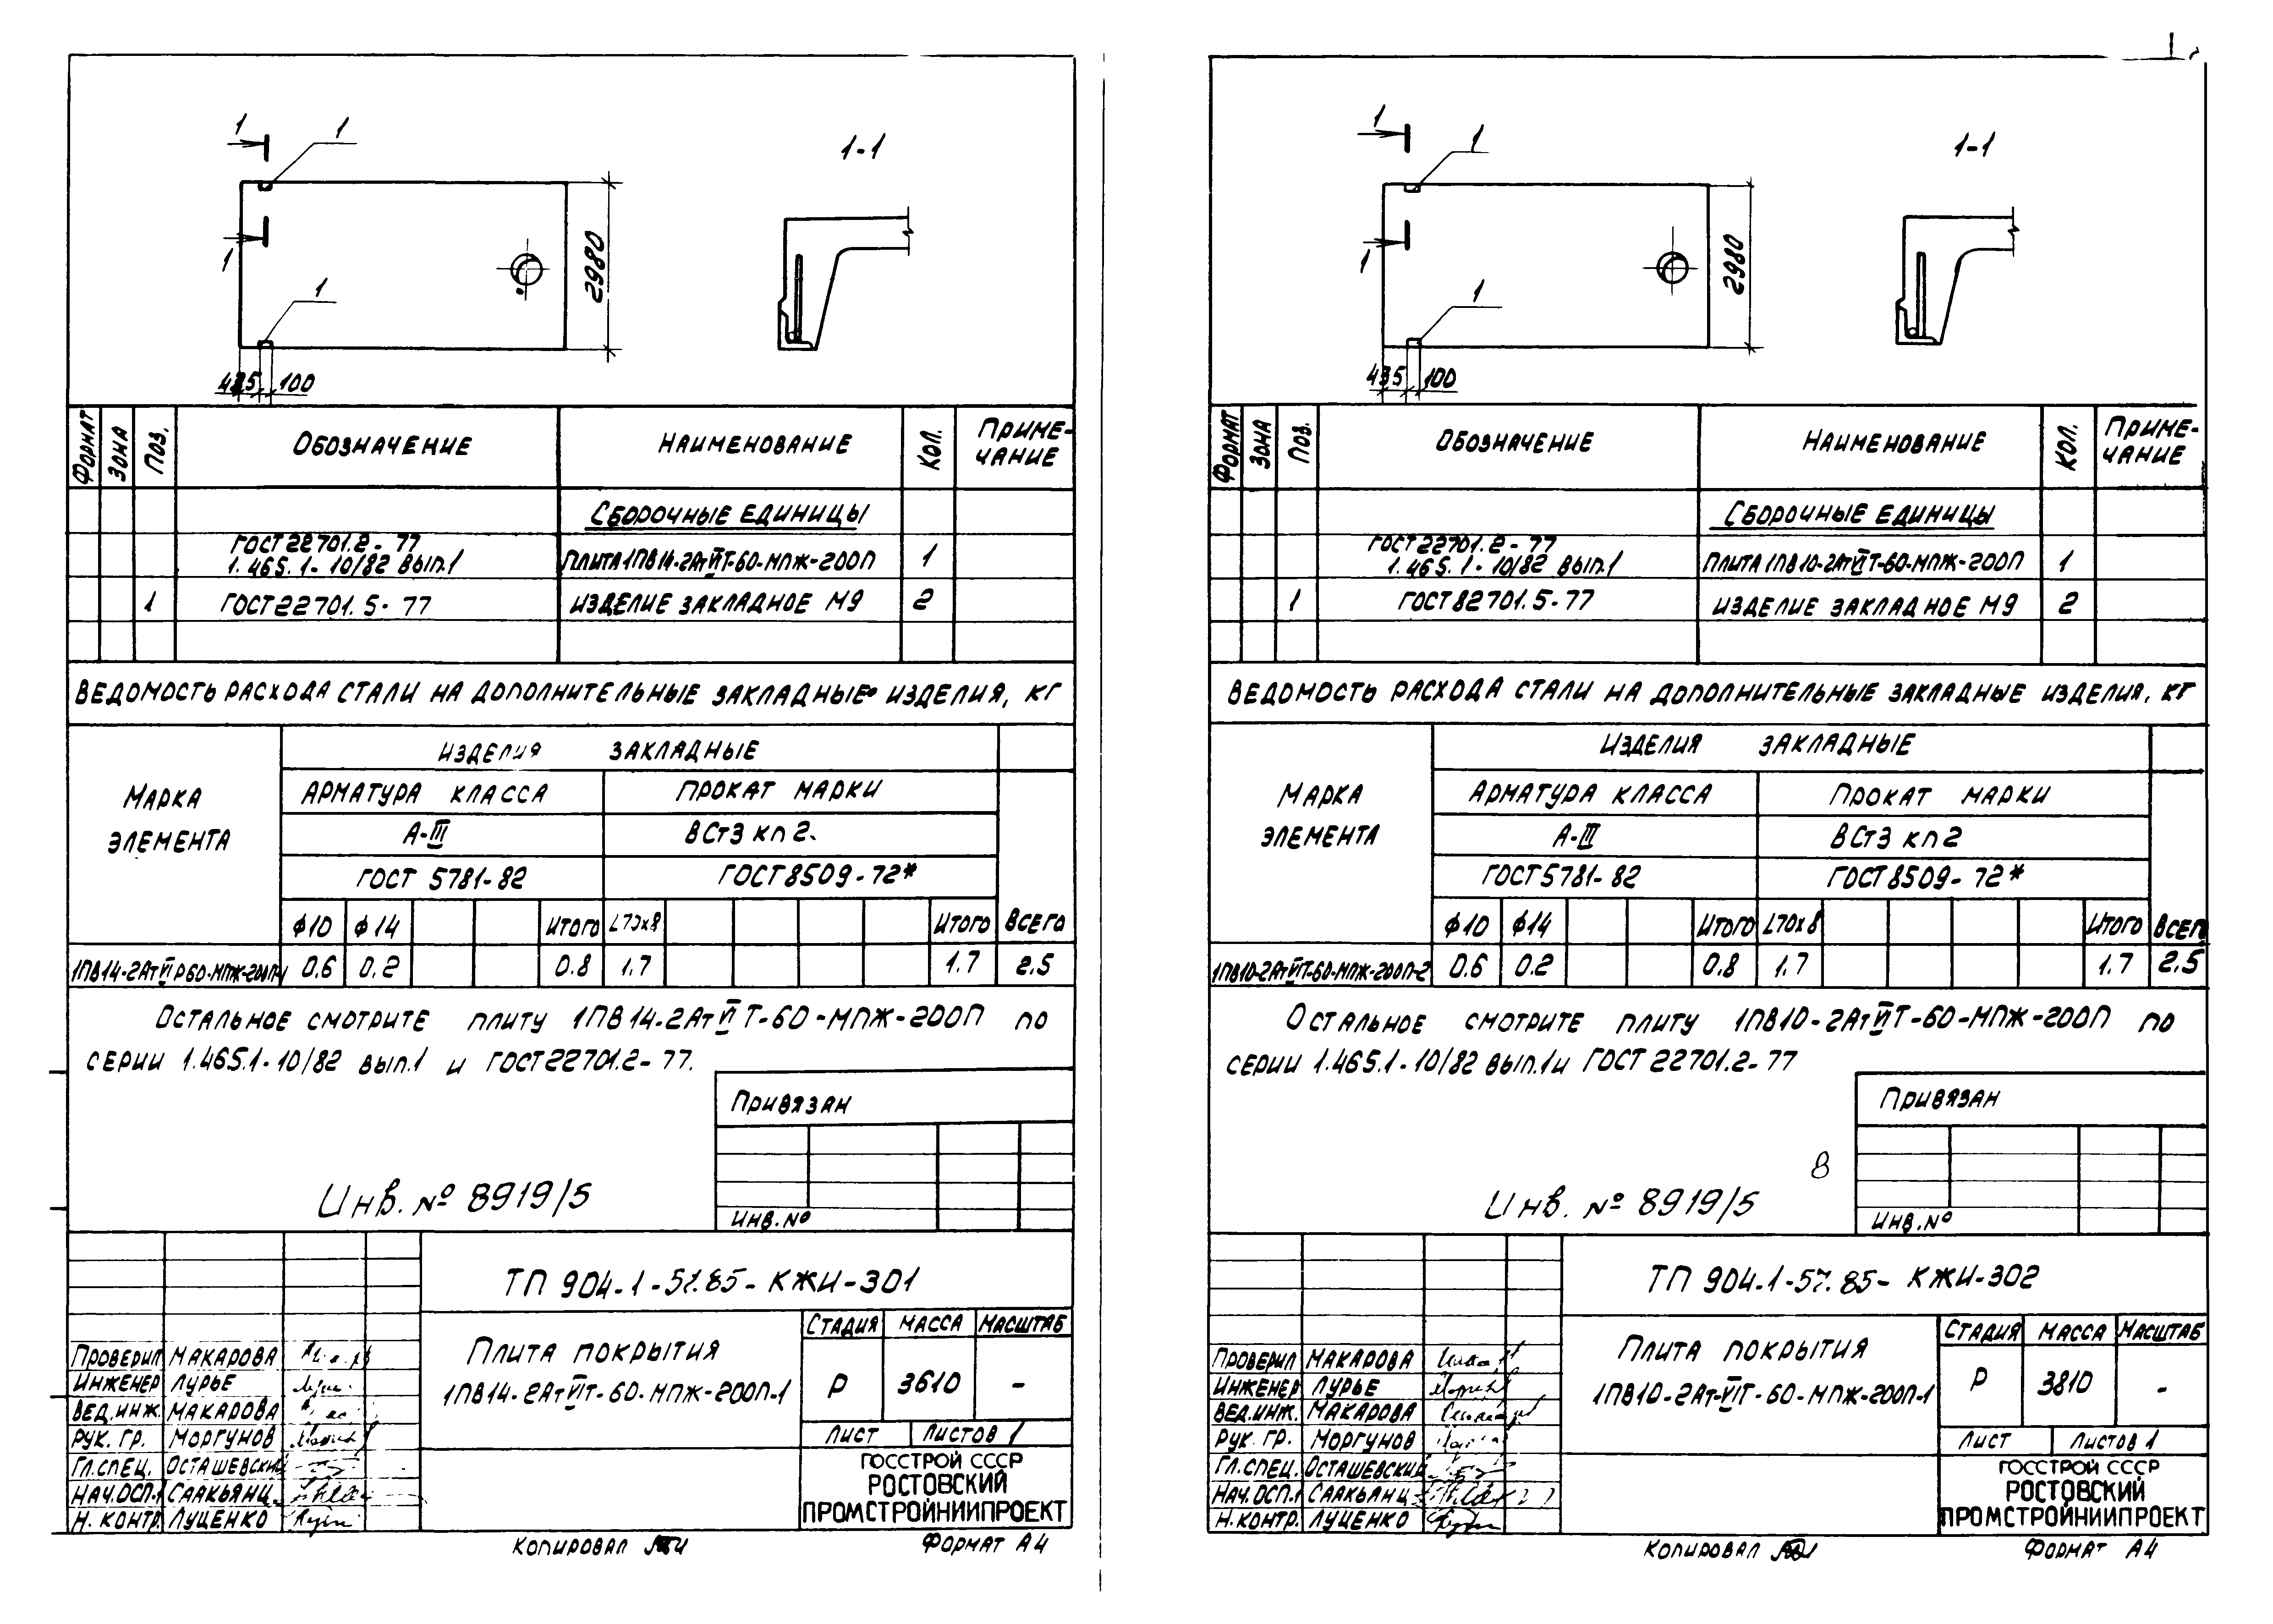 1 1
1-1
1
1
2980
100
ФОРМАТ ЗОНА ПОЗ. ОБОЗНАЧЕНИЕ НАИМЕНОВАНИЕ КОЛ. ПРИМЕ-
ЧАНИЕ
СБОРОЧНЫЕ ЕДИНИЦЫ
ГОСТ 22701.2-77
1.465.1-10/82 ВЫП.1 ПЛИТА 1ПВ14-2АтVIТ-60-МПЖ-200П 1
1 ГОСТ 22701.5-77 ИЗДЕЛИЕ ЗАКЛАДНОЕ М9 2
ВЕДОМОСТЬ РАСХОДА СТАЛИ НА ДОПОЛНИТЕЛЬНЫЕ ЗАКЛАДНЫЕ ИЗДЕЛИЯ, КГ
МАРКА
ЭЛЕМЕНТА
ИЗДЕЛИЯ ЗАКЛАДНЫЕ
АРМАТУРА КЛАССА ПРОКАТ МАРКИ
А-III ВСт3 кп 2.
ГОСТ 5781-82 ГОСТ 8509-72*
ф10 ф14 ИТОГО L70х8 ИТОГО ВСЕГО
1ПВ14-2АтVIР60-МПЖ-200П-1 0.6 0.2 0.8 1.7 1.7 2.5
ОСТАЛЬНОЕ СМОТРИТЕ ПЛИТУ 1ПВ14-2АтVIТ-60-МПЖ-200П ПО
СЕРИИ 1.465.1-10/82 ВЫП.1 И ГОСТ 22701.2-77.
ПРИВЯЗАН
ИНВ.№
Инв. № 8919/5
ТП 904-1-57.85-КЖИ-301
ПЛИТА ПОКРЫТИЯ
1ПВ14-2АтVIТ-60-МПЖ-200П-1
СТАДИЯ МАССА МАСШТАБ
Р 3610 -
ЛИСТ ЛИСТОВ 1
ГОССТРОЙ СССР
РОСТОВСКИЙ
ПРОМСТРОЙНИИПРОЕКТ
ПРОВЕРИЛ МАКАРОВА
ИНЖЕНЕР ЛУРЬЕ
ВЕД.ИНЖ. МАКАРОВА
РУК. ГР. МОРГУНОВ
ГЛ.СПЕЦ. ОСТАШЕВСКИЙ
НАЧ.ОСП-1 СААКЬЯНЦ
Н. КОНТР. ЛУЦЕНКО
КОПИРОВАЛ ФОРМАТ А4
1 1
1-1
1
1
2980
435 100
ФОРМАТ ЗОНА ПОЗ. ОБОЗНАЧЕНИЕ НАИМЕНОВАНИЕ КОЛ. ПРИМЕ-
ЧАНИЕ
СБОРОЧНЫЕ ЕДИНИЦЫ
ГОСТ 22701.2-77
1.465.1-10/82 ВЫП.1 ПЛИТА 1ПВ10-2АтVIТ-60-МПЖ-200П 1
1 ГОСТ 82701.5-77 ИЗДЕЛИЕ ЗАКЛАДНОЕ М9 2
ВЕДОМОСТЬ РАСХОДА СТАЛИ НА ДОПОЛНИТЕЛЬНЫЕ ЗАКЛАДНЫЕ ИЗДЕЛИЯ, КГ
МАРКА
ЭЛЕМЕНТА
ИЗДЕЛИЯ ЗАКЛАДНЫЕ
АРМАТУРА КЛАССА ПРОКАТ МАРКИ
А-III ВСт3 кп 2
ГОСТ 5781-82 ГОСТ 8509-72*
ф10 ф14 ИТОГО L70х8 ИТОГО ВСЕГО
1ПВ10-2АтVIТ-60-МПЖ-200П-2 0.6 0.2 0.8 1.7 1.7 2.5
ОСТАЛЬНОЕ СМОТРИТЕ ПЛИТУ 1ПВ10-2АтVIТ-60-МПЖ-200П ПО
СЕРИИ 1.465.1-10/82 ВЫП.1 И ГОСТ 22701.2-77
ПРИВЯЗАН
8
ИНВ.№
Инв. № 8919/5
ТП 904-1-57.85-КЖИ-302
ПЛИТА ПОКРЫТИЯ
1ПВ10-2Ат-VIТ-60-МПЖ-200П-1
СТАДИЯ МАССА МАСШТАБ
Р 3810 -
ЛИСТ ЛИСТОВ 1
ГОССТРОЙ СССР
РОСТОВСКИЙ
ПРОМСТРОЙНИИПРОЕКТ
ПРОВЕРИЛ МАКАРОВА
ИНЖЕНЕР ЛУРЬЕ
ВЕД.ИНЖ. МАКАРОВА
РУК. ГР. МОРГУНОВ
ГЛ.СПЕЦ. ОСТАШЕВСКИЙ
НАЧ.ОСП.1 СААКЬЯНЦ
Н.КОНТР. ЛУЦЕНКО
КОПИРОВАЛ ФОРМАТ А4